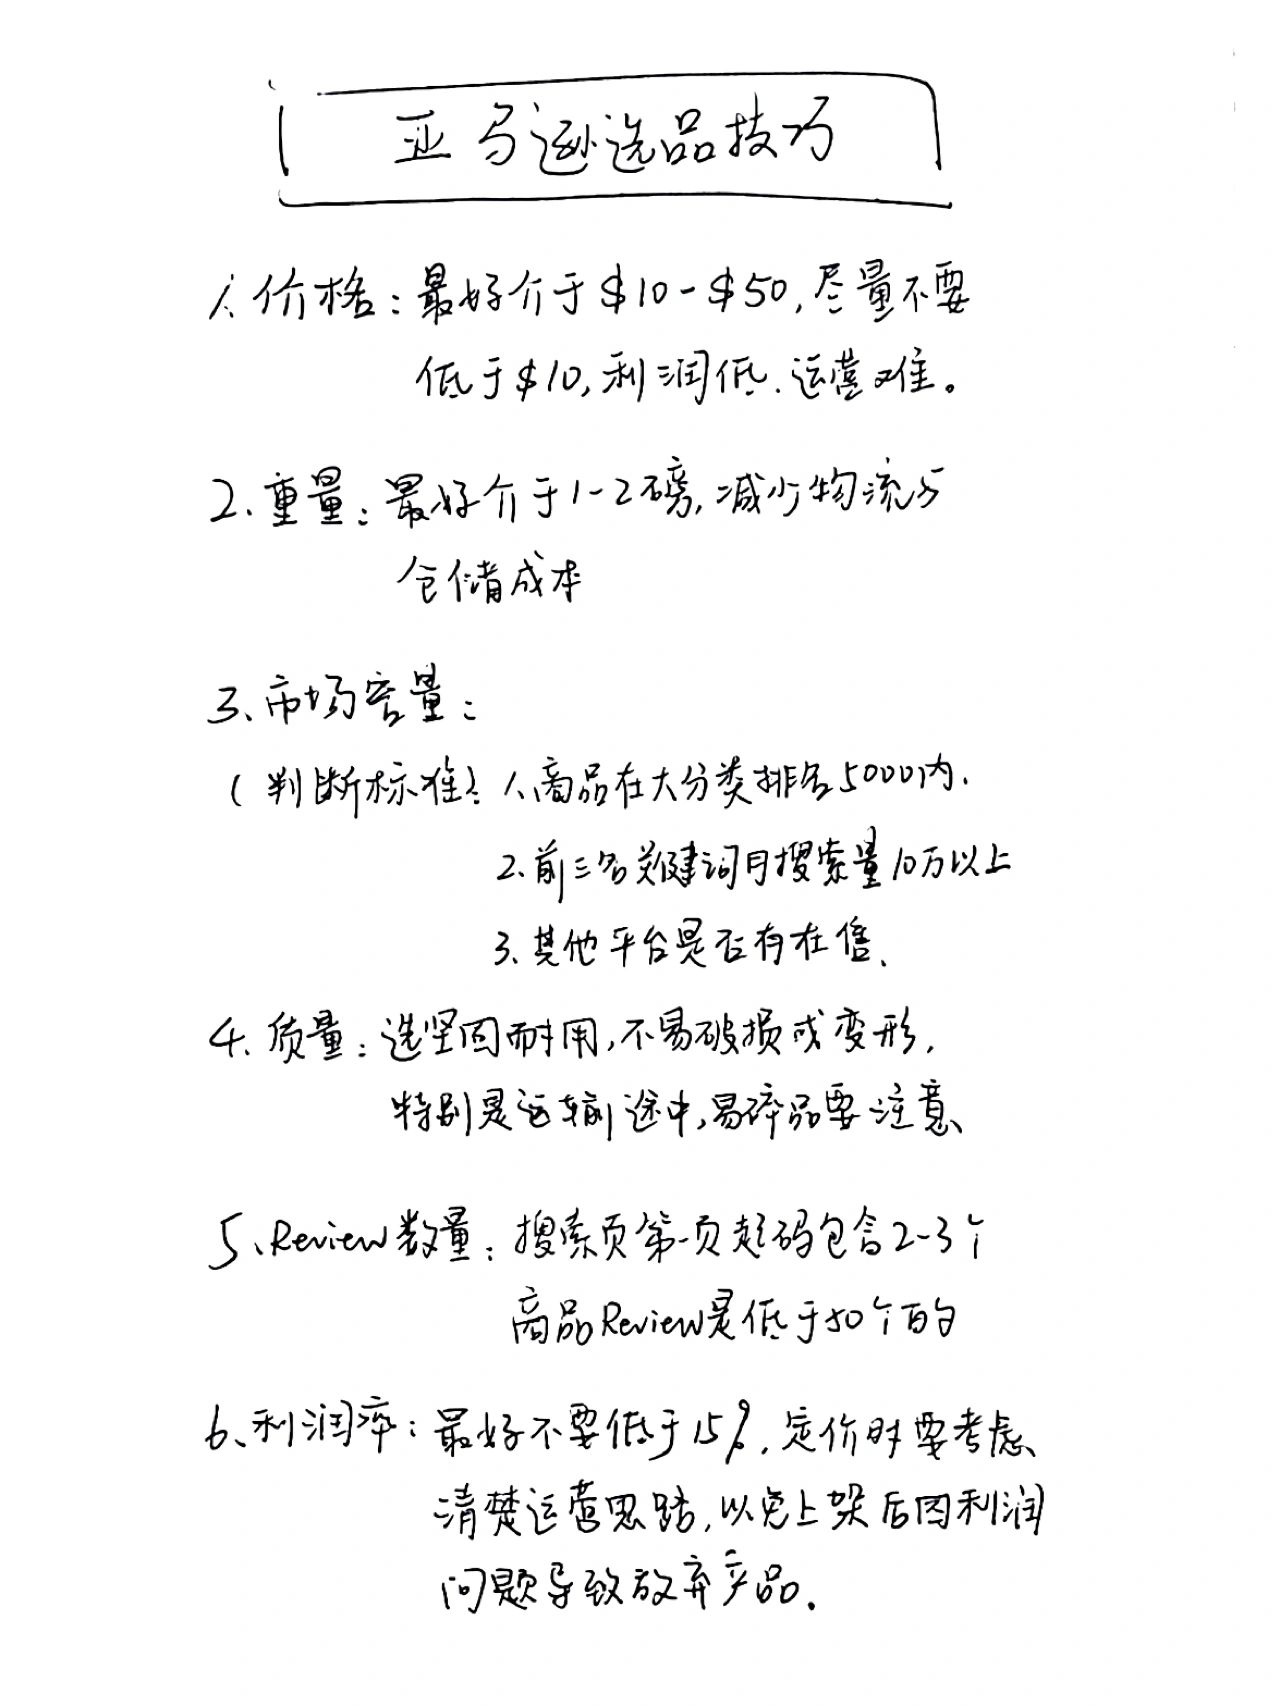 亚马逊选品技巧
1、价格：最好介于$10-$50，尽量不要
低于$10，利润低、运营难。
2、重量：最好介于1-2磅，减少物流与
仓储成本
3、市场容量：
(判断标准)：1、商品在大分类排名5000内、
2、前三名关键词月搜索量10万以上
3、其他平台是否有在售、
4、质量：选坚固耐用，不易破损或变形，
特别是运输途中，易碎品要注意、
5、Review数量：搜索页第一页起码包含2-3个
商品Review是低于50个的
6、利润率：最好不要低于15%，定价时要考虑
清楚运营思路，以免上架后因利润
问题导致放弃产品。